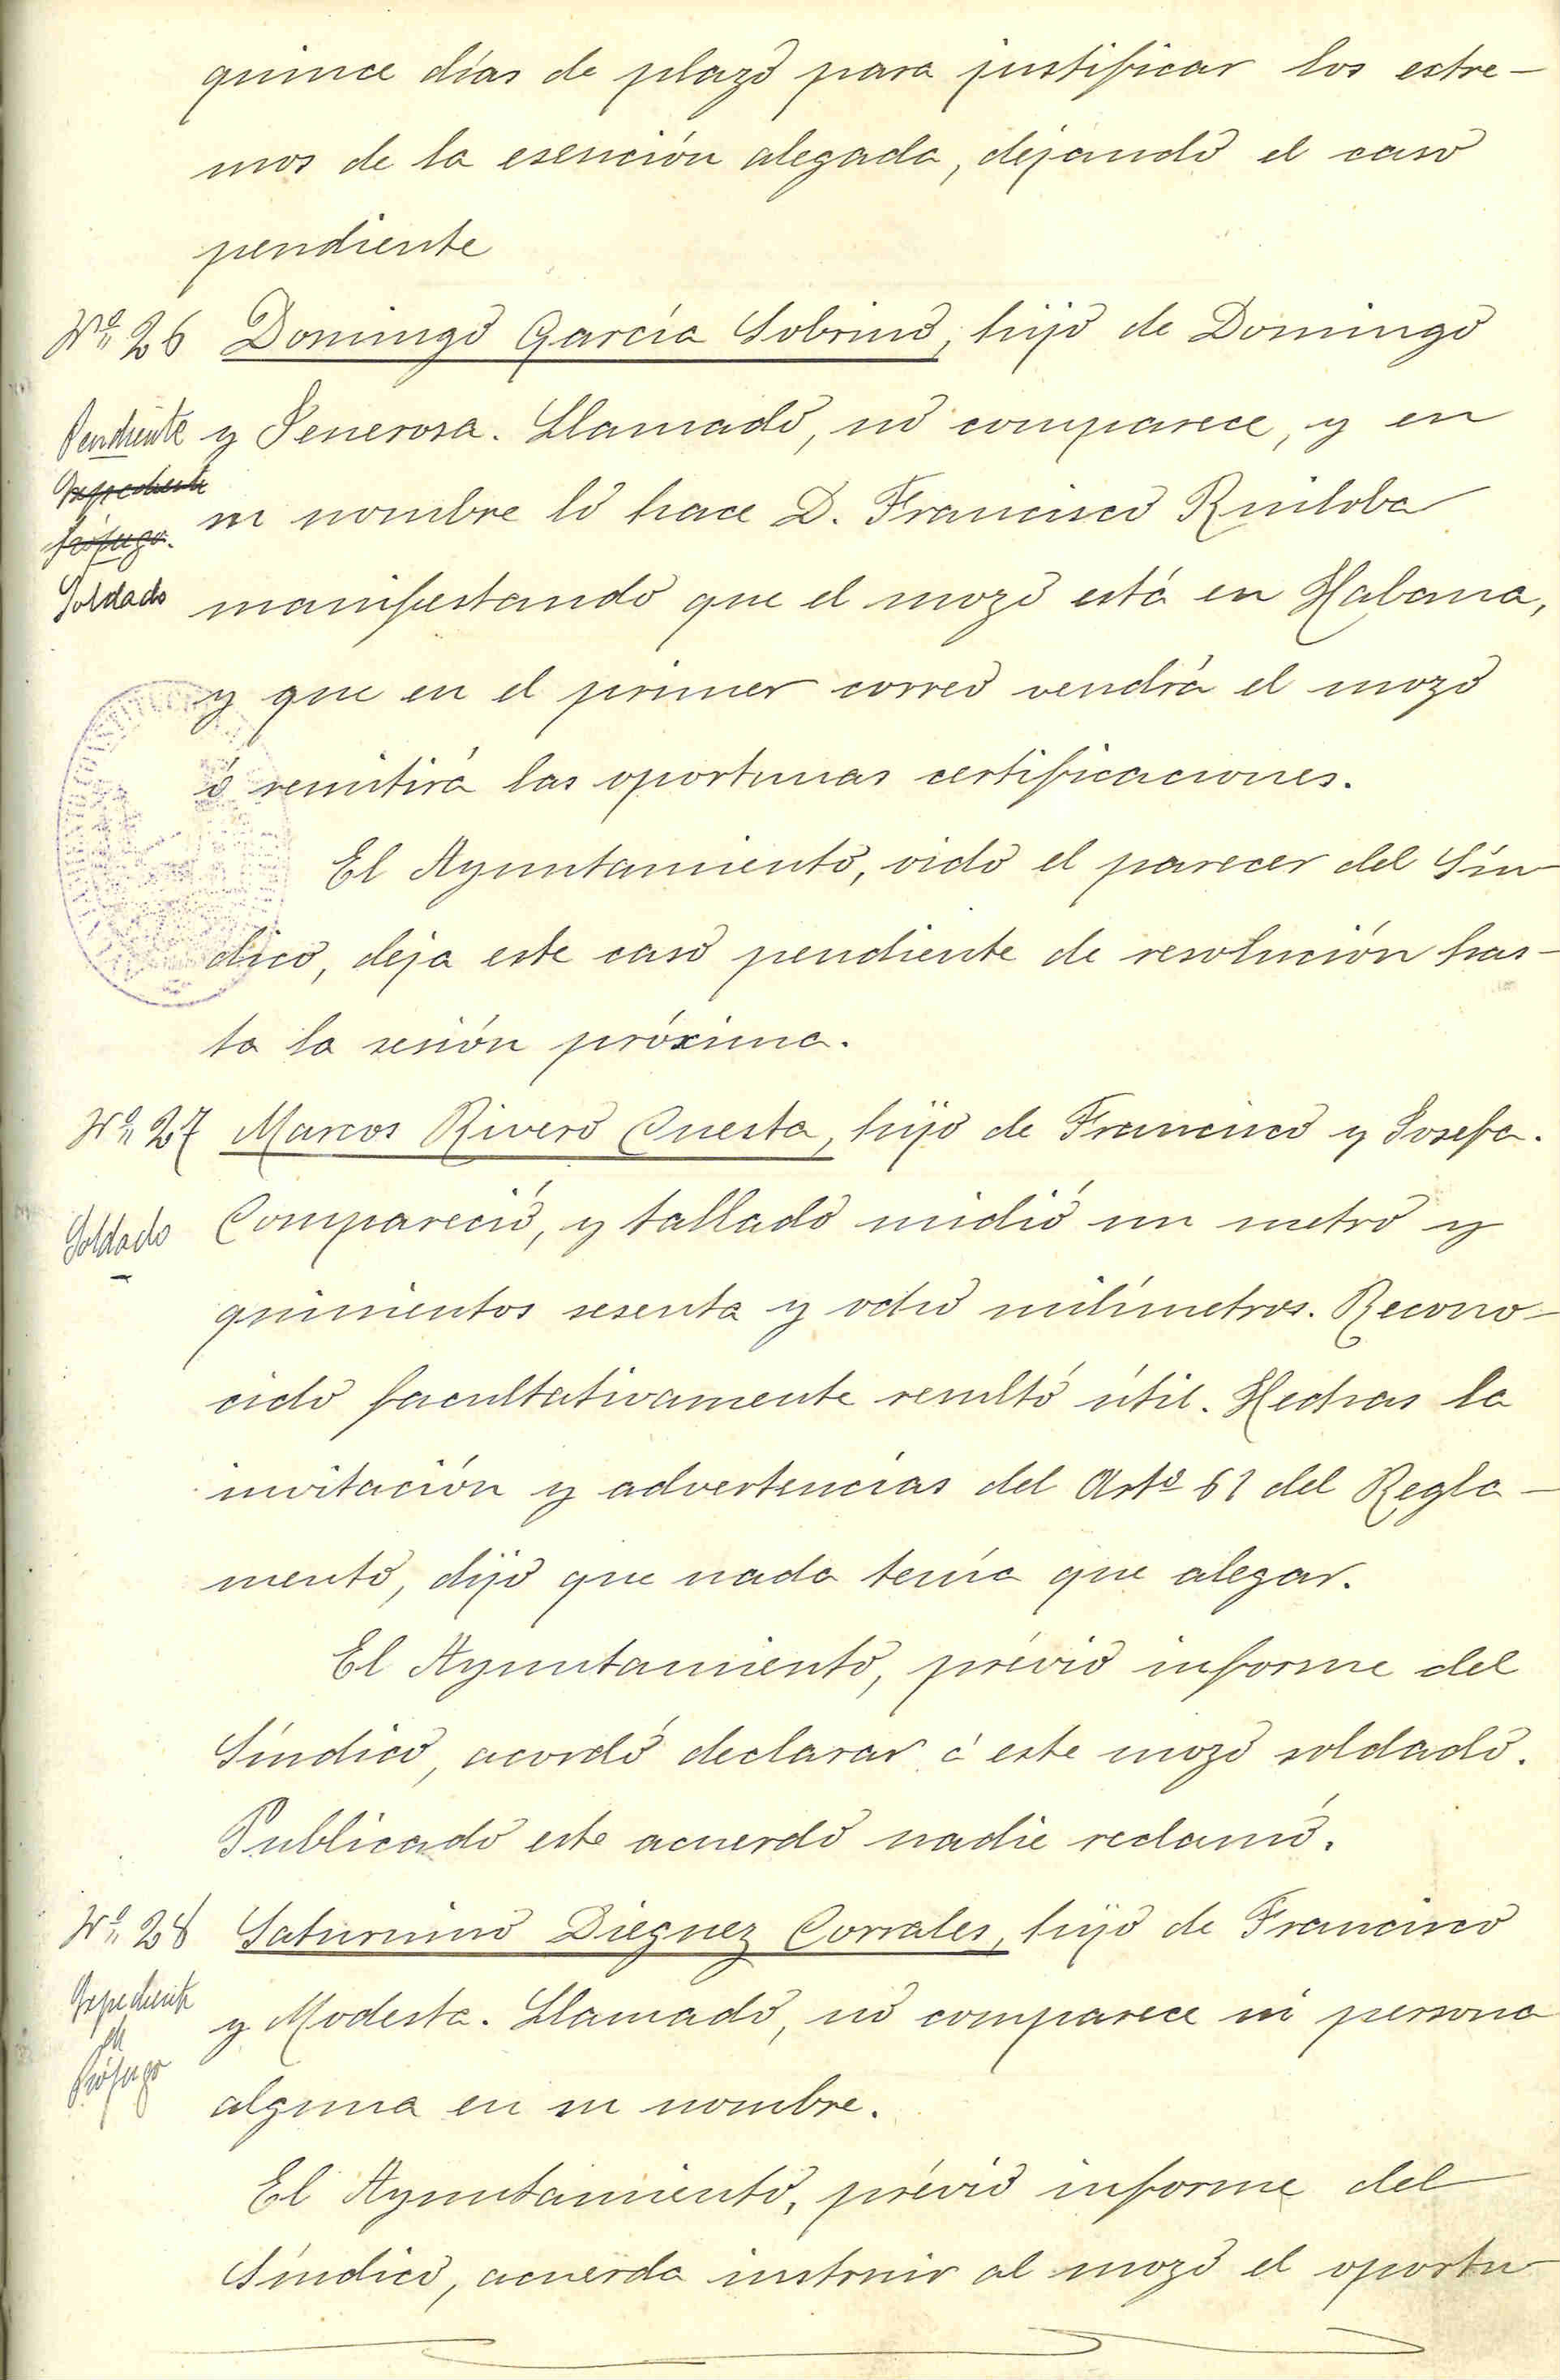 quince días de plazo para justificar los estre-
mos de la esención alegada, dejando el caso
pendiente
Nº 26 Domingo García Sobrino, hijo de Domingo
Pendiente y Generosa. Llamado, no comparece, y en
Expediente
su nombre lo hace D. Francisco Ruiloba
prófugo.
Soldado manifestando que el mozo está en Habana,
y que en el primer correo vendrá el mozo
ó remitirá las oportunas certificaciones.
El Ayuntamiento, oido el parecer del Sín
dico, deja este caso pendiente de resolución has-
ta la sesión próxima.
Nº 27 Marcos Rivero Cuesta, hijo de Francisco y Josefa.
Soldado Compareció, y tallado midió un metro y
quinientos sesenta y ocho milímetros. Recono-
cido facultativamente resultó útil. Hechas la
invitación y advertencias del Artº 61 del Regla-
mento, dijo que nada tenía que alegar.
El Ayuntamiento, prévio informe del
Síndico, acordó declarar á este mozo soldado.
Publicado este acuerdo nadie reclamó.
Nº 28 Saturnino Dieguez Corrales, hijo de Francisco
Expediente
y Modesta. Llamado, no comparece ni persona
de
Prófugo
alguna en su nombre.
El Ayuntamiento, prévio informe del
Síndico, acuerda instruir al mozo el oportu